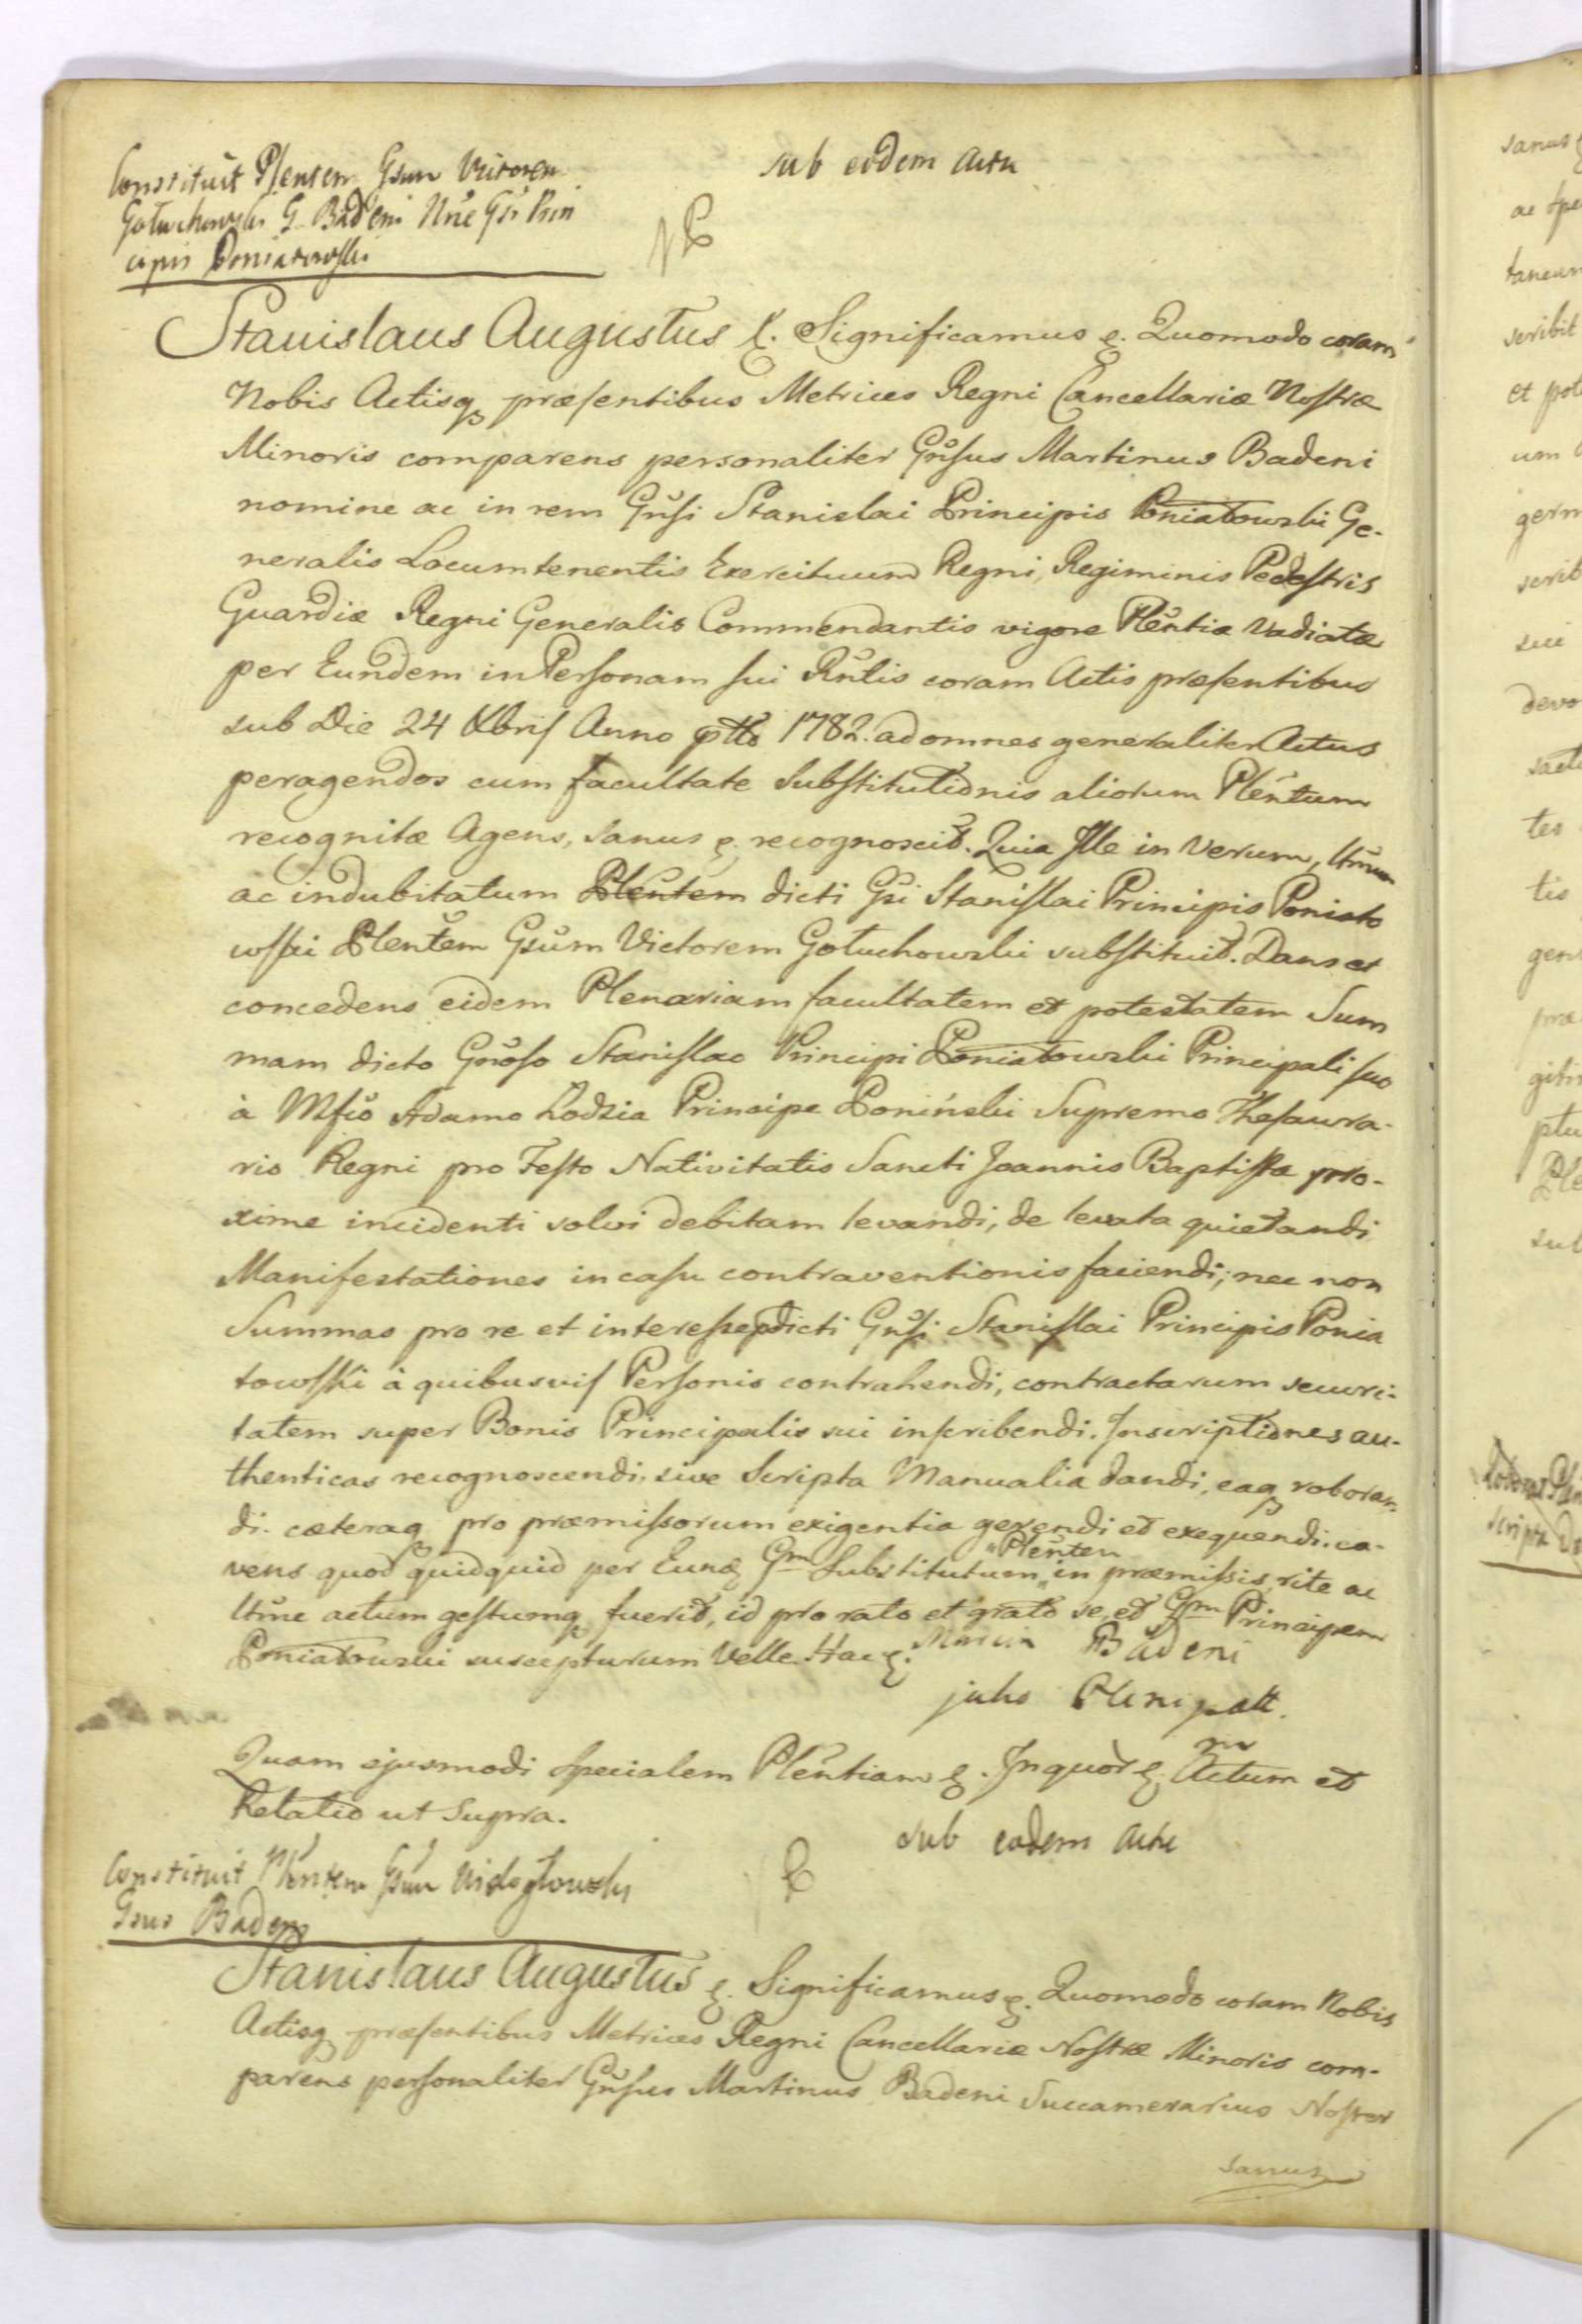 sub eodem actu
Constituit Plentem Gsum Victorem
Gołuchowski G. Badeni Nne Gsi Prin
cipis Poniatowski
Stanislaus Augustus &. Significamus &. Quomodo coram
Nobis Actisq præsentibus Metrices Regni Cancellariæ Nostræ
Minoris comparens personaliter Gnsus Martinus Badeni
nomine ac in rem Gnsi Stanislai Principis Poniatowski Ge-
neralis Locumtenentis Exercituum Regni, Regiminis Pedestris
Guardiæ Regni Generalis Commendantis vigore Plentiæ Vadiatæ
per Eundem in Personam sui Rntis coram Actis præsentibus
sub Die 24 Xbris Anno ptto 1782. ad omnes generaliter Actus
peragendos cum facultate Substitutionis aliorum Plentum
recognitæ Agens, sanus &. recognoscit. Quia Ille in Verum, ltmum
ac indubitatum Plentem dicti Gsi Stanislai Principis Poniato
wski Plentem Gsum Victorem Gołuchowski substituit. Dans et
concedens eidem Plenariam facultatem et potestatem Sum
mam dicto Gnoso Stanislao Principi Poniatowski Principali suo
à Mfco Adamo Łodzia Principe Poniński Supremo Thesaura-
rio Regni pro Festo Nativitatis Sancti Joannis Baptistæ pro-
xime incidenti solvi debitam levandi, de levata quietandi
Manifestationes in casu contraventionis faciendi; nec non
Summas pro re et interesse pdicti Gnsi Stanislai Principis Ponia
towski à quibusvis Personis contrahendi, contractarum securi-
tatem super Bonis Principalis sui inscribendi. Inscriptiones au-
thenticas recognoscendi, sive Scripta Manualia dandi, eaq roboran-
di. cæteraq pro præmissorum exigentia gerendi et exequendi. ca-
vens quod quidquid per Eund Gm Substitutum "Plentem in præmissis, rite ac
ltme actum gestumq fuerit, id pro rato et grato se, et Gm Principem
Poniatowski suscepturum Velle. Hac &. Marcin Badeni
jako Plenipott.
Quam ejusmodi specialem Plentiam &. In quor &. Actum et
Relatio ut Supra.
sub eodem actu
Constituit Plentem Gsum
Gsus Badeni
Stanislaus Augustus &. Significamus &. Quomodo coram Nobis
Actisq præsentibus Metrices Regni Cancellariæ Nostræ Minoris com-
parens personaliter Gnsus Martinus Badeni Succamerarius Noster
sanus